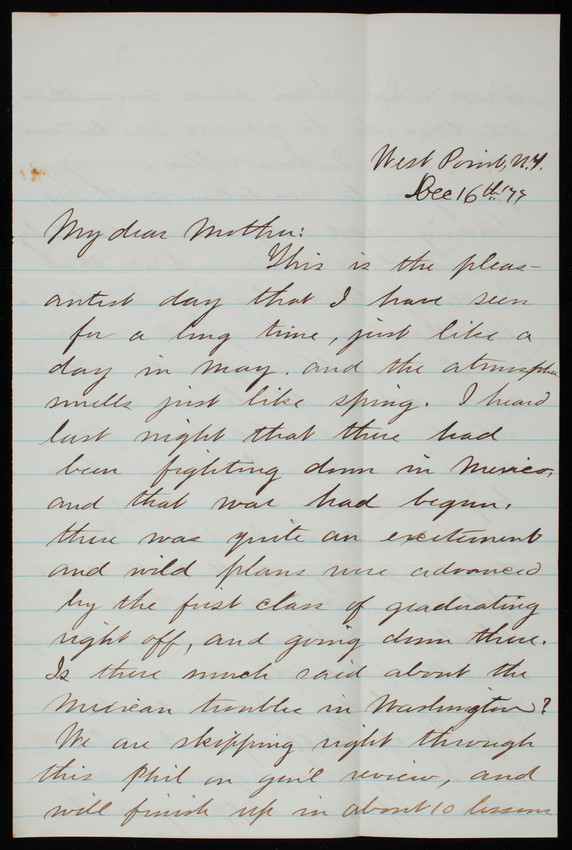 West Point, N.Y.
Dec 16th '77
My dear Mother:
This is the pleas-
antest day that I have seen
for a long time, just like a
day in May. and the atmosphere
smells just like spring. I heard
last night that there had
been fighting down in Mexico,
and that war had begun.
there was quite an excitement
and wild plans were advanced
by the first class of graduating
right off, and going down there.
Is there much said about the
Mexican trouble in Washington?
We are skipping right through
this Phil on gen'l review, and
will finish up in about 10 lessons